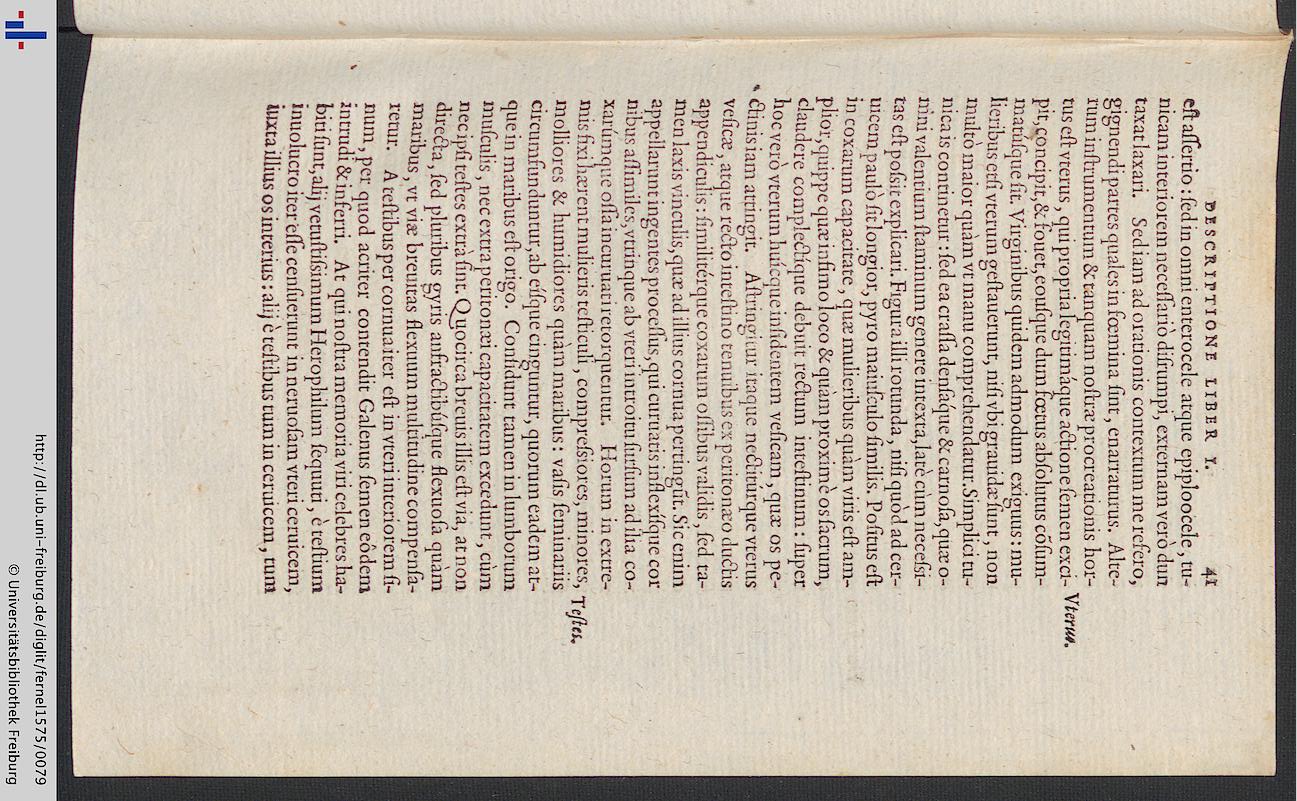 DESCRIPTIONE LIBER I. 41
eſt aſſertio: ſed in omni enterocele atque epiploocele, tu-
nicam interiorem neceſſariò diſrumpi, externam verò dun
taxat laxari. Sed iam ad orationis contextum me refero,
gignendi partes quales in fœmina ſint, enarraturus. Alte-
rum inſtrumentum & tanquam noſtræ procreationis hor-
tus eſt vterus, qui propria legitimáque actione ſemen exci-
Vterus.
pit, concipit, & fouet, eouſque dum fœtus abſolutus cõſum-
matúſque ſit. Virginibus quidem admodum exiguus: mu-
lieribus etſi vterum geſtauerunt, niſi vbi grauidæ ſunt, non
multò maior quàm vt manu comprehendatur. Simplici tu-
nica is continetur: ſed ea craſſa denſáque & carnoſa, quæ o-
mni valentium ſtaminum genere intexta, latè cùm neceſſi-
tas eſt poſsit explicari. Figura illi rotunda, niſi quòd ad cer-
uicem paulò ſit longior, pyro maiuſculo ſimilis. Poſitus eſt
in coxarum capacitate, quæ mulieribus quàm viris eſt am-
plior, quippe quæ infimo loco & quàm proximè os ſacrum,
claudere complectíque debuit rectum inteſtinum: ſuper
hoc verò vterum huicque inſidentem veſicam, quæ os pe-
ctinis iam attingit. Aſtringitur itaque nectiturque vterus
veſicæ, atque recto inteſtino tenuibus ex peritonæo ductis
appendiculis: ſimilitérque coxarum oſſibus validis, ſed ta-
men laxis vinculis, quæ ad illius cornua pertingũt. Sic enim
appellarunt ingentes proceſſus, qui curuatis inflexíſque cor
nibus aſſimiles, vtrinque ab vteri introitu ſurſum ad ilia co-
xarúmque oſſa incuruati retorquentur. Horum in extre-
mis fixi hærent mulieris teſticuli, compreſsiores, minores,
Teſtes.
molliores & humidiores quàm maribus: vaſis ſeminariis
circumfunduntur, ab eiſque cinguntur, quorum eadem at-
que in maribus eſt origo. Conſidunt tamen in lumborum
muſculis, nec extra peritonæi capacitatem excedunt, cùm
nec ipſi teſtes extrà ſint. Quocirca breuis illis eſt via, at non
directa, ſed pluribus gyris anfractibúſque flexuoſa quàm
maribus, vt viæ breuitas flexuum multitudine compenſa-
retur. A teſtibus per cornua iter eſt in vteri interiorem ſi-
num, per quod acriter contendit Galenus ſemen eôdem
intrudi & inferri. At qui noſtra memoria viri celebres ha-
biti ſunt, alij vetuſtiſsimum Herophilum ſequuti, è teſtium
inuolucro iter eſſe cenſuerunt in neruoſam vteri ceruicem,
iuxta illius os interius: alij è teſtibus tum in ceruicem, tum
http://dl.ub.uni-freiburg.de/diglit/fernel1575/0079
© Universitätsbibliothek Freiburg